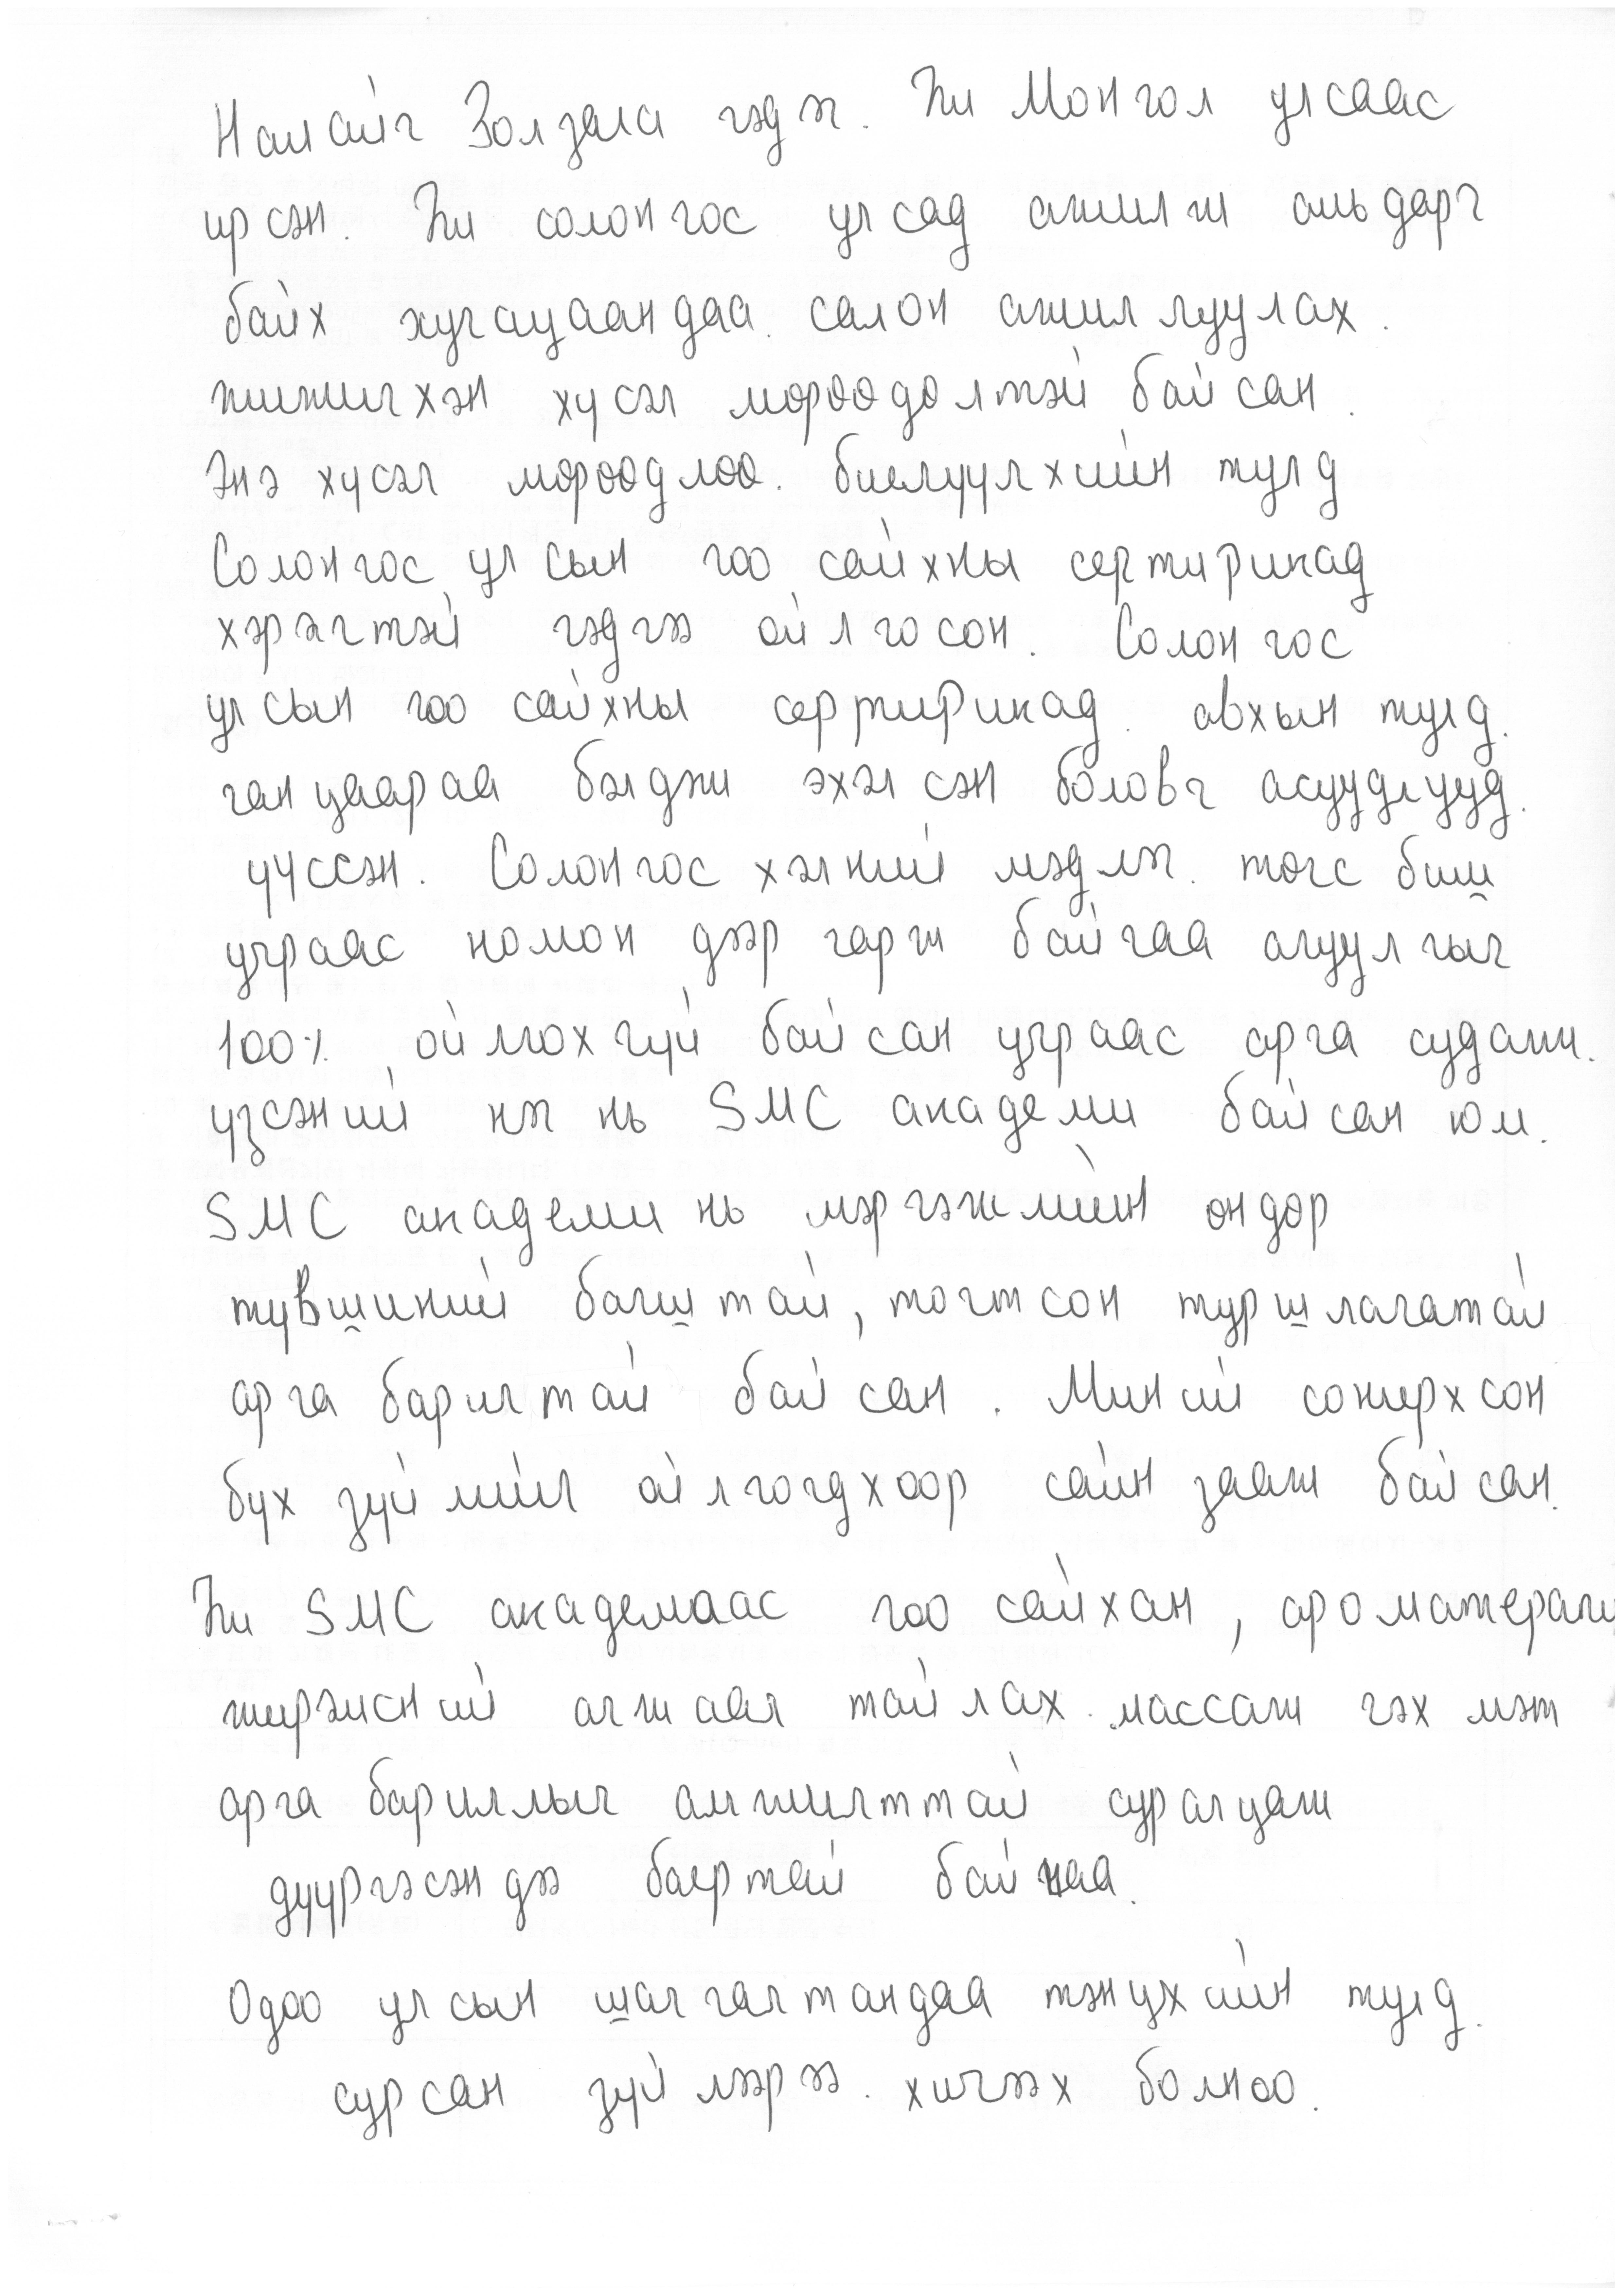 Намайг Золзаяа гэдэг. Би Монгол улсаас
ирсэн. Би солонгос улсад ажилж амьдарч
байх хугацаандаа салон ажиллуулах
жижигхэн хүсэл мөрөөдөлтэй байсан.
Энэ хүсэл мөрөөдлөө биелүүлхийн тулд
Солонгос улсын гоо сайхны сертирикад
хэрэгтэй гэдгээ ойлгосон. Солонгос
улсын гоо сайхны сертирикад авхын тулд
ганцаараа бэлдэж эхэлсэн боловч асуудлууд
үүссэн. Солонгос хэлний мэдлэг төгс биш
учраас номон дээр гарж байгаа агуулгыг
100% ойлгохгүй байсан учраас арга судалж
үзсэний нэг нь SMC академи байсан юм.
SMC академи нь мэргэжлийн өндөр
түвшиний багштай, тогтсон туршлагатай
арга барилтай байсан. Миний сонирхсон
бүх зүйлийг ойлгогдхоор сайн зааж байсан.
Би SMC академаас гоо сайхан, ароматерапи
жирэмсний агшаал тайлах массаж гэх мэт
арга бариллыг амжилттай суралцаж
дүүргэсэндээ баяртай байнаа.
Одоо улсын шалгалтандаа тэнцхийн тулд
сурсан зүйлээрээ хичээх болноо.